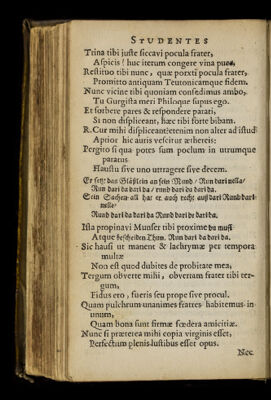 STUDENTES
Trina tibi juste siccavi pocula frater,
Aspicis! huc iterum congere vina puer,
Restituo tibi nunc, quæ porxti pocula frater,
Promitto antiquam Teutonicamque fidem.
Nunc vicine tibi quoniam consedimus ambo,
Tu Gurgista meri Philoque supus ego.
Et sorbere pares & respondere parati,
Si non displiceant, hæc tibi forte bibam.
R. Cur mihi displiceant? etenim non alter ad istud
Aptior hic auris vescitur æthereis:
Pergito si qua potes sum poclum in utrumque
paratus
Haustu sive uno utragere sive decem.
Er setz das Gläßlein an sein Mund / Run dari nella /
Run dari da dari da / rund dari do dari da.
Sein Sachen all hat er auch recht auß dari Rund dari
nella /
Rund dari da dari da Rund dari de dari da.
Ista propinavi Munser tibi proxime du must
Atque bescheiden Thun. Run dari da dari da.
Sic hausi ut manent & lachrymæ per tempora
multæ
Non est quod dubites de probitate mea,
Tergum obverte mihi, obvertam frater tibi tergum,
Fidus ero, fueris seu prope sive procul.
Quam pulchrum unanimes fratres habitemus in
unum,
Quam bona sunt firmæ fœdera amicitiæ.
Nunc si præterea mihi copia virginis esset,
Perfectum plenis lustibus esset opus.
Nec